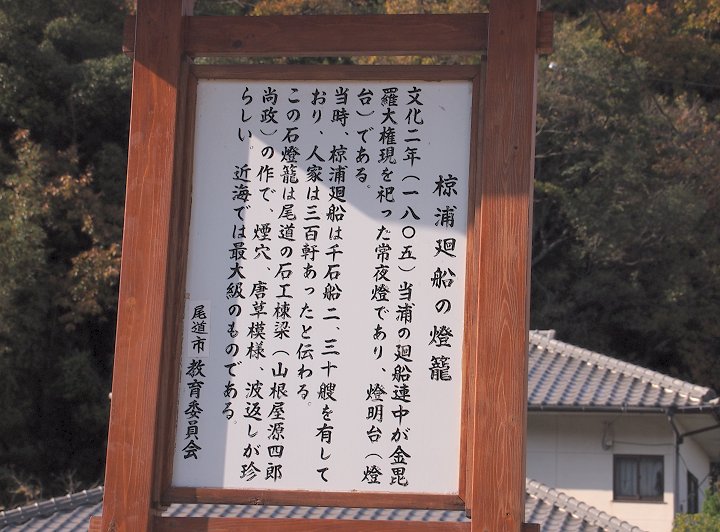 椋浦廻船の燈籠
文化二年(一八〇五)当浦の廻船連中が金毘
羅大権現を祀った常夜燈であり、燈明台(燈
台)である。
当時、椋浦廻船は千石船二、三十艘を有して
おり、人家は三百軒あったと伝わる。
この石燈籠は尾道の石工棟梁(山根屋源四郎
尚政)の作で、煙穴、唐草模様、波返しが珍
らしい。近海では最大級のものである。
尾道市教育委員会